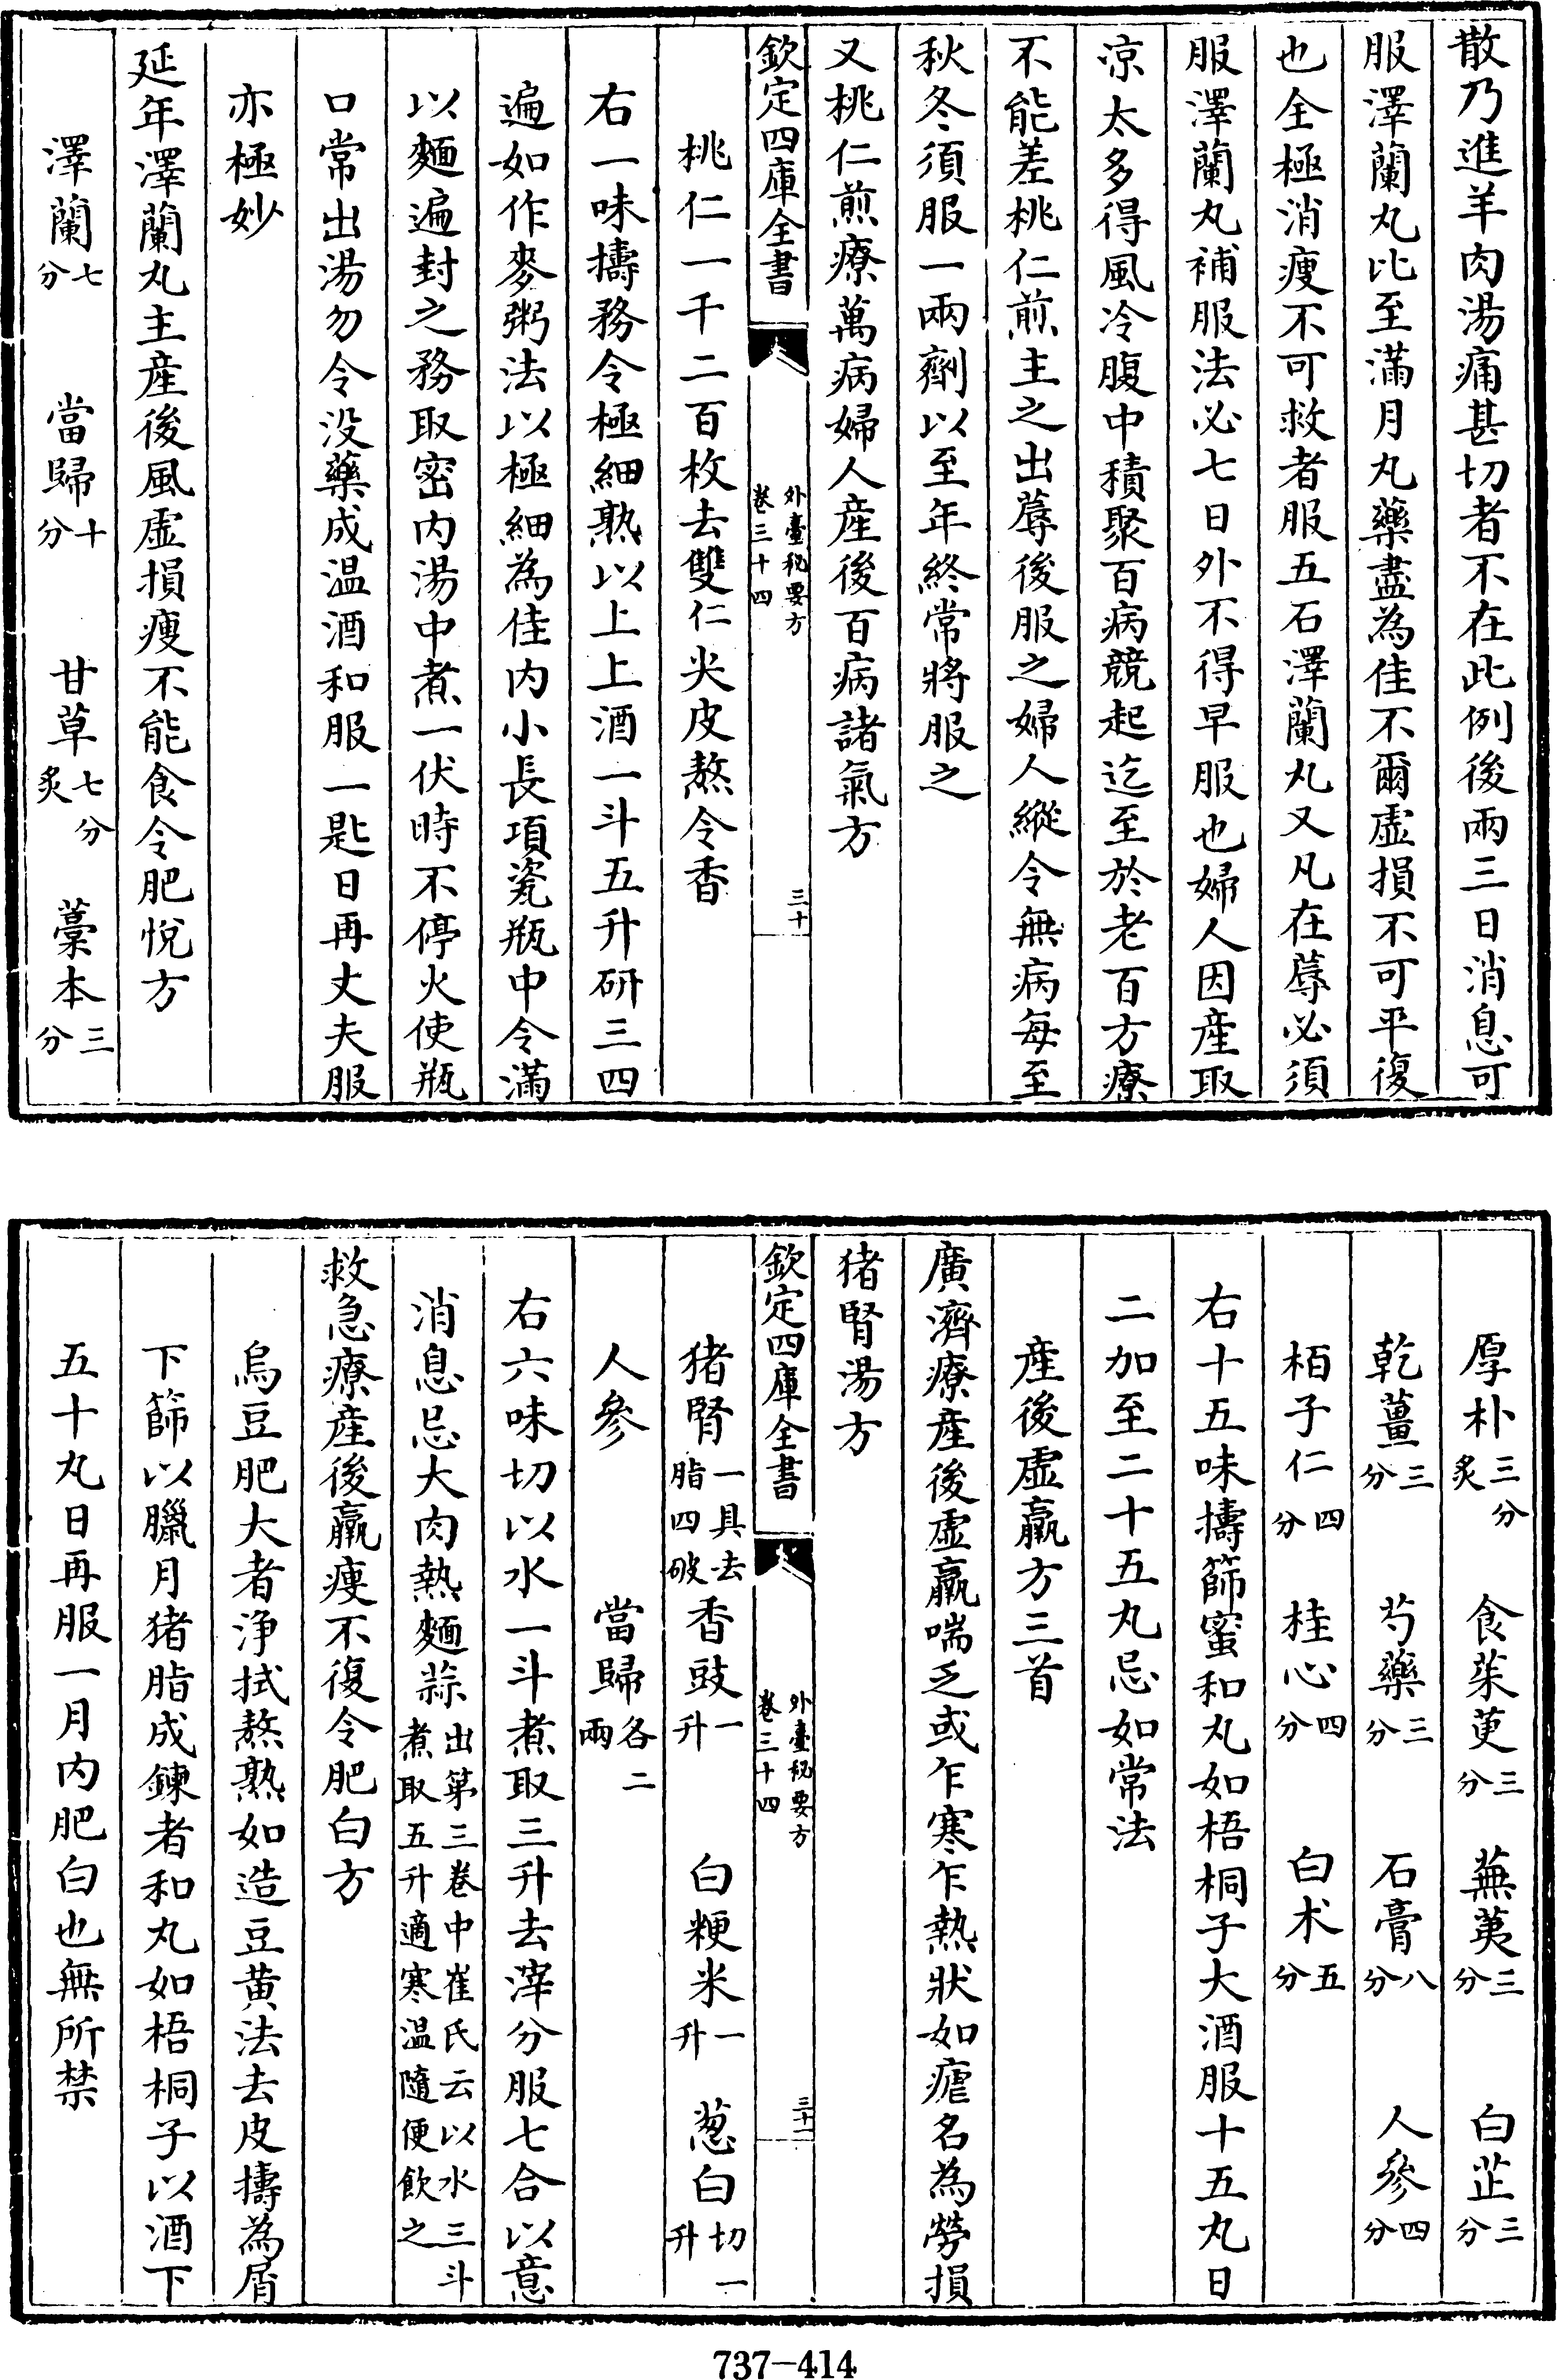 散乃進羊肉湯痛甚切者不在此例後兩三日消息可
服澤蘭丸比至滿月丸藥盡為佳不爾虚損不可平復
也全極消瘦不可救者服五石澤蘭丸又凡在蓐必須
服澤蘭丸補服法必七日外不得早服也婦人因産取
涼太多得風冷腹中積聚百病競起迄至於老百方療
不能差桃仁煎主之出蓐後服之婦人縱令無病每至
秋冬須服一兩劑以至年終常將服之
又桃仁煎療萬病婦人産後百病諸氣方
欽定四庫全書 外臺秘要方 卷三十四 三十
桃仁一千二百枚去雙仁尖皮熬令香
右一味擣務令極細熟以上上酒一斗五升研三四
遍如作麥粥法以極細為佳内小長項瓷瓶中令滿
以麵遍封之務取密内湯中煮一伏時不停火使瓶
口常出湯勿令没藥成温酒和服一匙日再丈夫服
亦極妙
延年澤蘭丸主産後風虚損瘦不能食令肥悦方
澤蘭七分 當歸十分 甘草七分炙 藁本三分
厚朴三分炙 食茱萸三分 蕪荑三分 白芷三分
乾薑三分 芍藥三分 石膏八分 人參四分
栢子仁四分 桂心四分 白术五分
右十五味擣篩蜜和丸如梧桐子大酒服十五丸日
二加至二十五丸忌如常法
産後虚羸方三首
廣濟療産後虚羸喘乏或乍寒乍熱狀如瘧名為勞損
猪腎湯方
欽定四庫全書 外臺秘要方 卷三十四 三十一
猪腎一具去脂四破 香豉一升 白粳米一升 葱白切一升
人參 當歸各二兩
右六味切以水一斗煮取三升去滓分服七合以意
消息忌大肉熱麵蒜出第三卷中崔氏云以水三斗煮取五升適寒温隨便飲之
救急療産後羸瘦不復令肥白方
烏豆肥大者浄拭熬熟如造豆黄法去皮擣為屑
下篩以臘月猪脂成鍊者和丸如梧桐子以酒下
五十丸日再服一月内肥白也無所禁
737-414